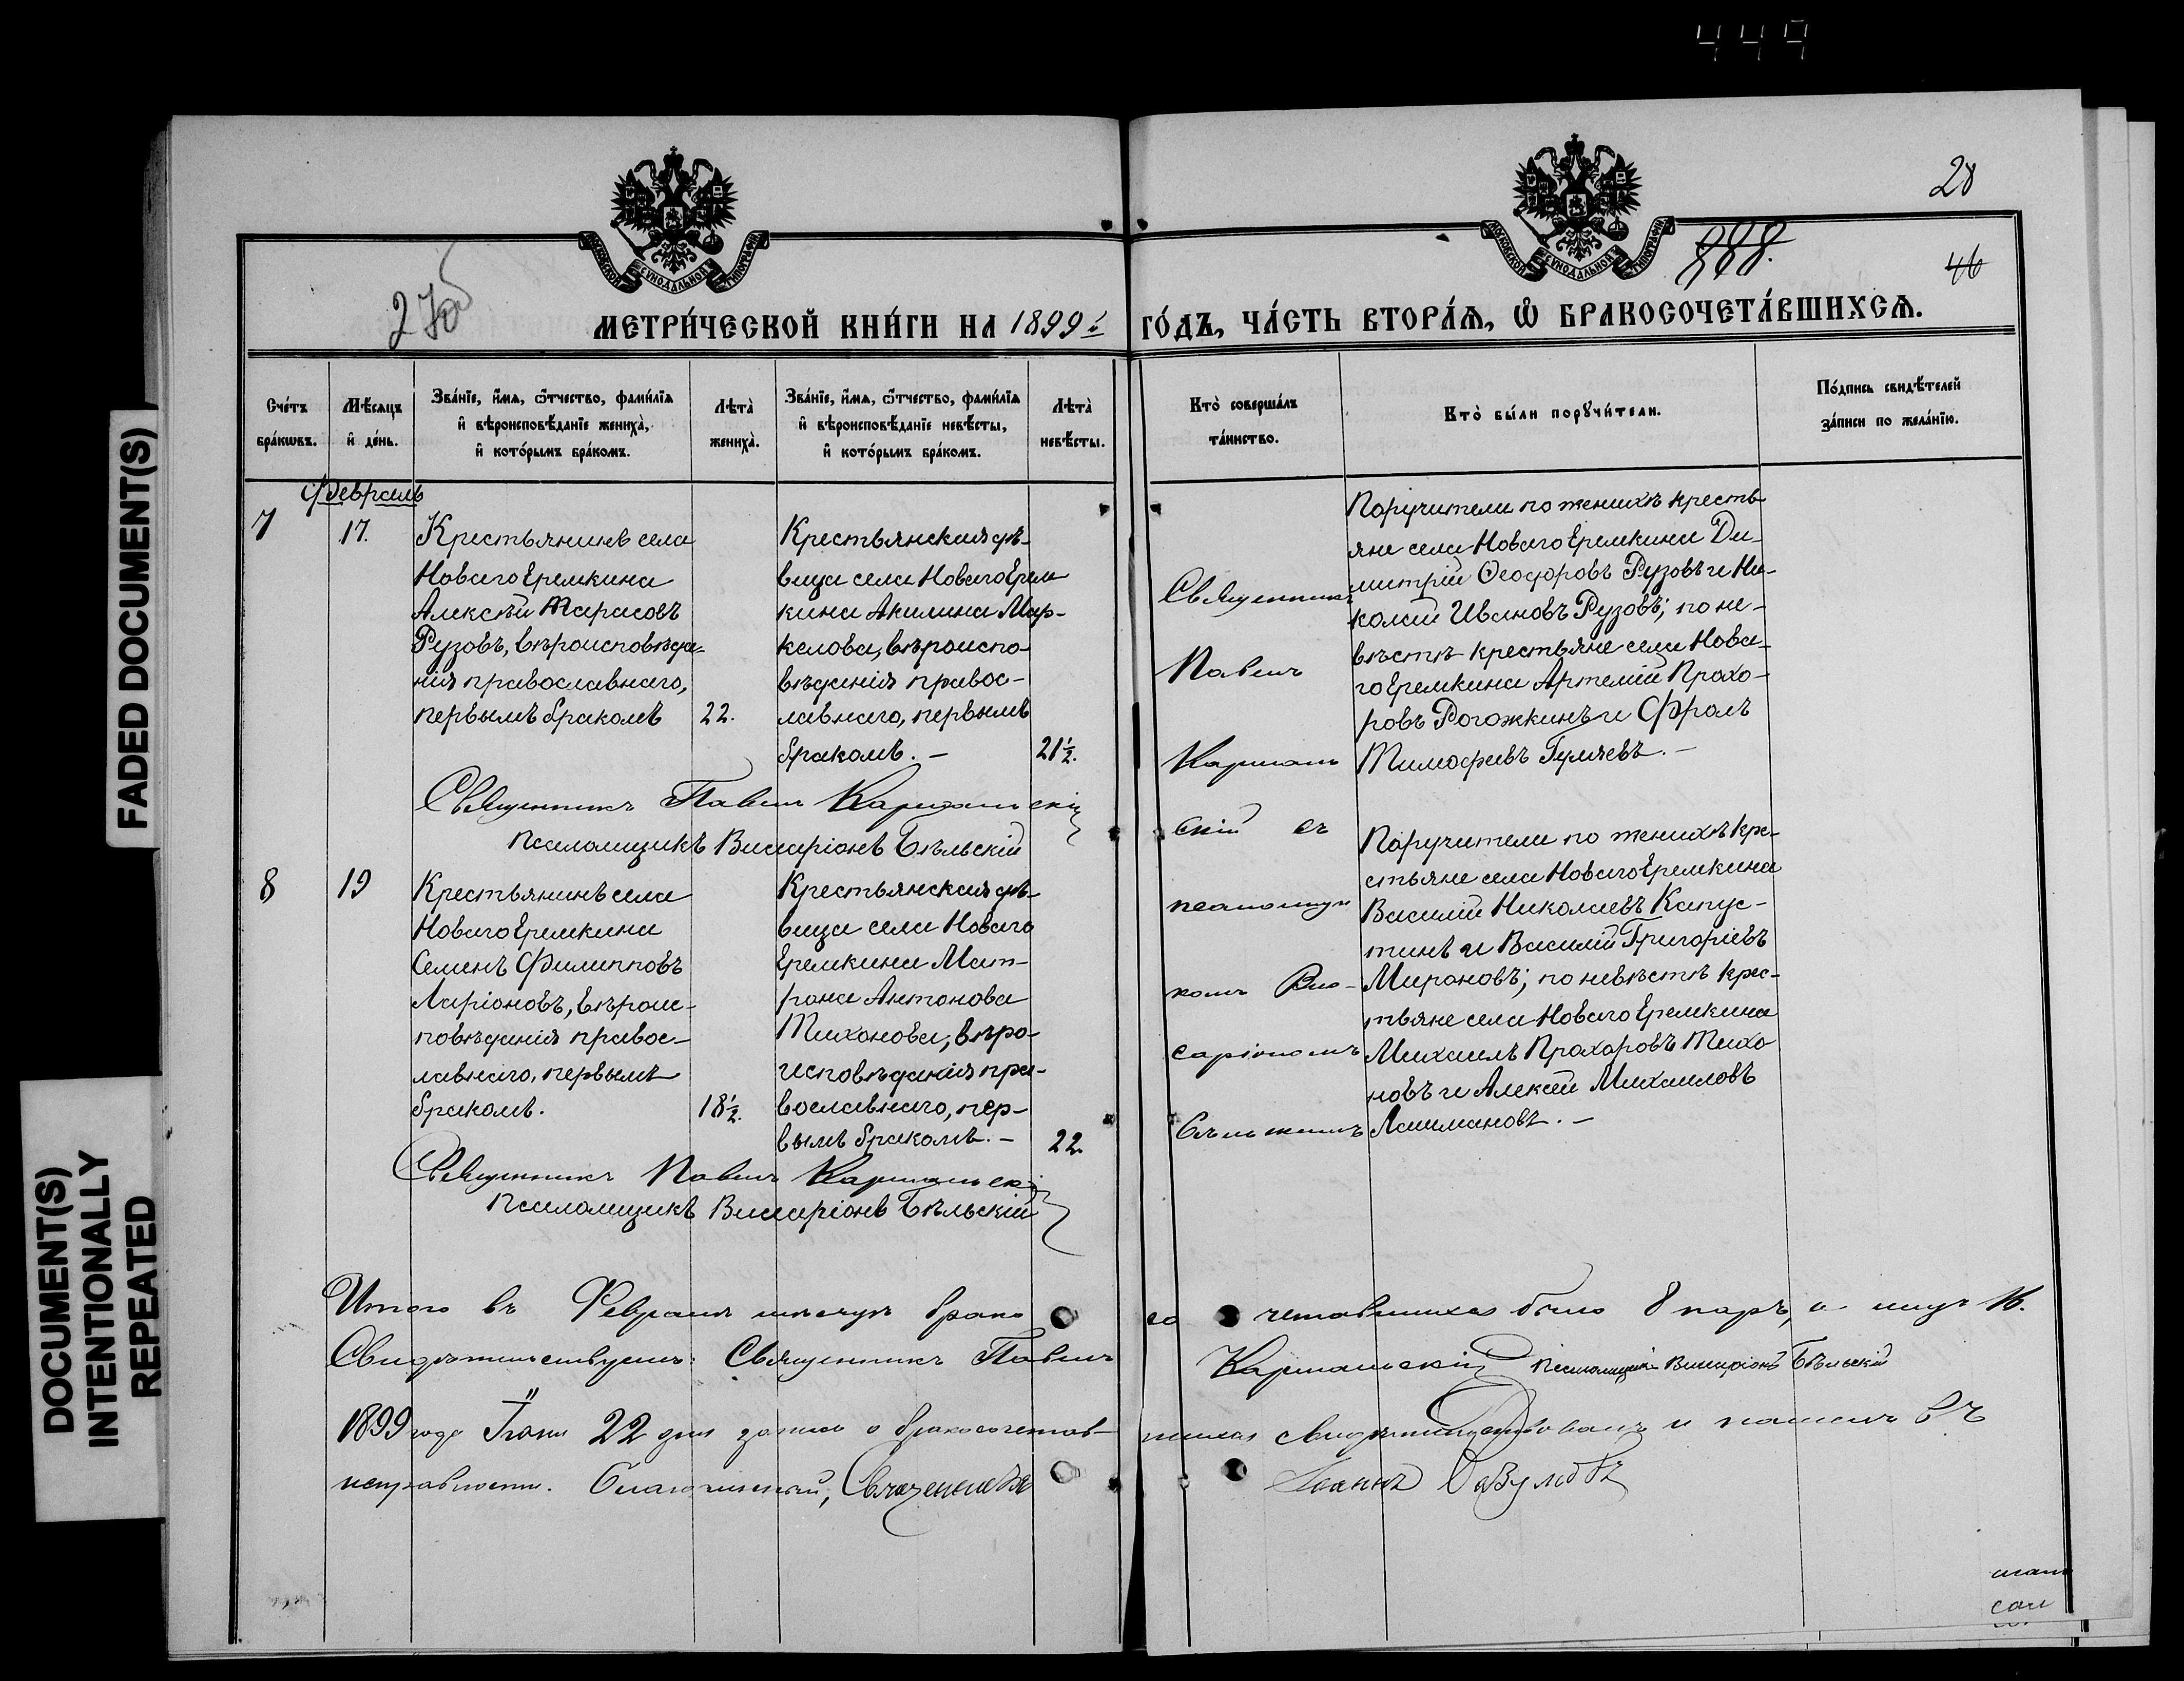 449
28
888.
46
27об
МОСКОВСКОЙ СѴНОДАЛЬНОЙ ТИПОГРАФІИ
МОСКОВСКОЙ СѴНОДАЛЬНОЙ ТИПОГРАФІИ
МЕТРИ́ЧЕСКОЙ КНИ́ГИ НА 1899й ГО́ДЪ, ЧА́СТЬ ВТОРА́Ѧ, Ѡ БРАКОСОЧЕТА́ВШИХСѦ.
Сче́тъ бра́кѡвъ.
Мѣ́сяцъ и де́нь.
Зва́нїе, и́мѧ, ѻ́тчество, фами́лїѧ и вѣроисповѣ́данїе жениха̀, и кото́рымъ бра́комъ.
Лѣта̀ жениха̀.
Зва́нїе, и́мѧ, ѻ́тчество, фами́лїѧ и вѣроисповѣ́данїе невѣ́сты, и кото́рымъ бра́комъ.
Лѣта̀ невѣ́сты.
Кто̀ соверша́лъ та́инство.
Кто̀ бы́ли порꙋчи́тели.
По́дпись свидѣ́телей за́писи по жела́нїю.
Февраль
7
17.
Крестьянинъ села
Новаго Еремкина
Алексѣй Тарасовъ
Рузовъ, вѣроисповѣда-
нія православнаго,
первымъ бракомъ
22.
Крестьянская дѣ-
вица села Новаго Ерем
кина Акилина Мар-
келова, вѣроиспо
вѣданія правос-
лавнаго, первымъ
бракомъ. -
21½.
Священникъ
Павелъ
Кармаль
скій съ
псаломщи
комъ Вис-
саріономъ
Бѣльскимъ
Поручители по женихѣ кресть
яне села Новаго Еремкина Ди-
митрій Ѳеодоровъ Рузовъ и Ни-
колай Ивановъ Рузовъ; по не-
вѣстѣ крестьяне села Нова-
го Еремкина Артемій Прохо-
ровъ Рогожкинъ и Фролъ
Тимофеевъ Гуляевъ. -
Священникъ Павелъ Кармальскій
Псаломщикъ Виссаріонъ Бѣльскій
8
19
Крестьянинъ села
Новаго Еремкина
Семенъ Филипповъ
Ларіоновъ, вѣроис-
повѣданія правос-
лавнаго, первымъ
бракомъ.
18½.
Крестьянская дѣ-
вица села Новаго
Еремкина Мат-
рона Антонова
Тихонова, вѣро-
исповѣданія пра-
вославнаго, пер-
вымъ бракомъ. -
22.
Поручители по женихѣ кре-
стьяне села Новаго Еремкина
Василій Николаевъ Капус-
тинъ и Василій Григорьевъ
Мироновъ; по невѣстѣ крес-
тьяне села Новаго Еремкина
Михаилъ Прохоровъ Тихо
новъ и Алексѣй Михаиловъ
Священникъ Павелъ Кармальскі
Псаломщикъ Виссаріонъ Бѣльскій
Итого въ Февралѣ мѣсяцѣ брако со четавшихся было 8 паръ, а лицъ 16.
Свидѣтельствуемъ: Священникъ Павелъ Кармальскій Псаломщикъ Виссаріонъ Бѣльскій
1899 года Іюня 22 дня запись о бракосочетав- шихся свидѣтельствовалъ и нашелъ въ
исправности. Благочинный, Священникъ Іоаннъ
FADED DOCUMENT(S)
DOCUMENT(S)
INTENTIONALLY
REPEATED